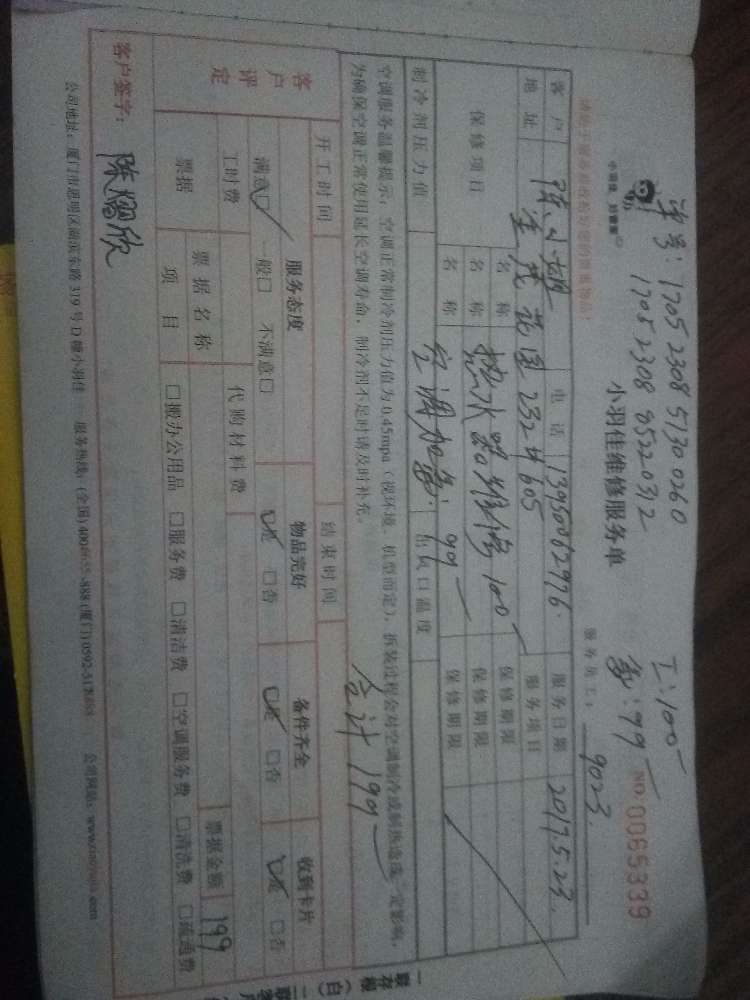 单号: 1705 2308 5130 0260
1705 2308 8522 0312
工: 100
氟: 99
小羽佳 好管家
小羽佳维修服务单
NO. 0065339
服务员工: 9023
客户
电话 13950012976
服务日期 2017.5.23
地址 232# 605
服务项目
保修项目
名称 热水器维修 100
保修期限
名称
保修期限
名称 空调加氟: 99
保修期限
制冷剂压力值
出风口温度
空调服务温馨提示: 空调正常制冷剂压力值为0.45mpa (视环境、机型而定), 拆装过程会对空调制冷或制热造成一定影响,
为确保空调正常使用延长空调寿命, 制冷剂不足时请及时补充。
合计 199
开工时间
结束时间
客户评定
服务态度
物品完好
备件齐全
收到卡片
满意☑ 一般□ 不满意□
☑是 □否
☑是 □否
☑是 □否
工时费
代购材料费
票据
票据名称
票据金额 199
项目
□搬办公用品 □服务费 □清洁费 □空调服务费 □清洗费 □疏通费
客户签字:
公司地址: 厦门市思明区湖滨东路 319 号 D 幢小羽佳 服务热线: (全国)
公司网站:
一联存根 (白)